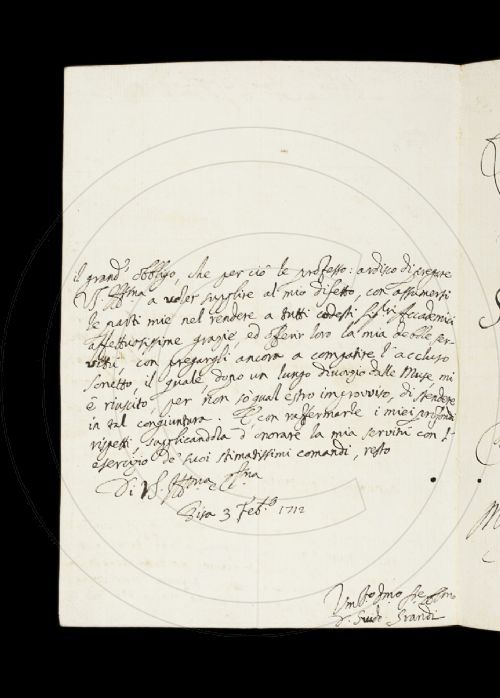 il grand' obbligo, che per ciò le professo: ardisco di pregare
V. S. Illma, a voler supplire al mio difetto, con assumersi
le parti mie nel rendere a tutti codesti SS.ri Accademici
affettuosissime grazie, ed offerir loro la mia debole ser-
vitù, con pregargli ancora a compatire l'accluso
sonetto, il quale dopo un lungo divorzio dalle Muse mi
è riuscito per non so qual estro improvviso, di stendere
in tal congiuntura. E con raffermarle i miei profondi
rispetti, supplicandola d'onorare la mia servitù con l'
esercizio de' suoi stimatissimi comandi, resto
Di V. S. Illma
Pisa 3 Feb.o 1712
D. Guido Grandi